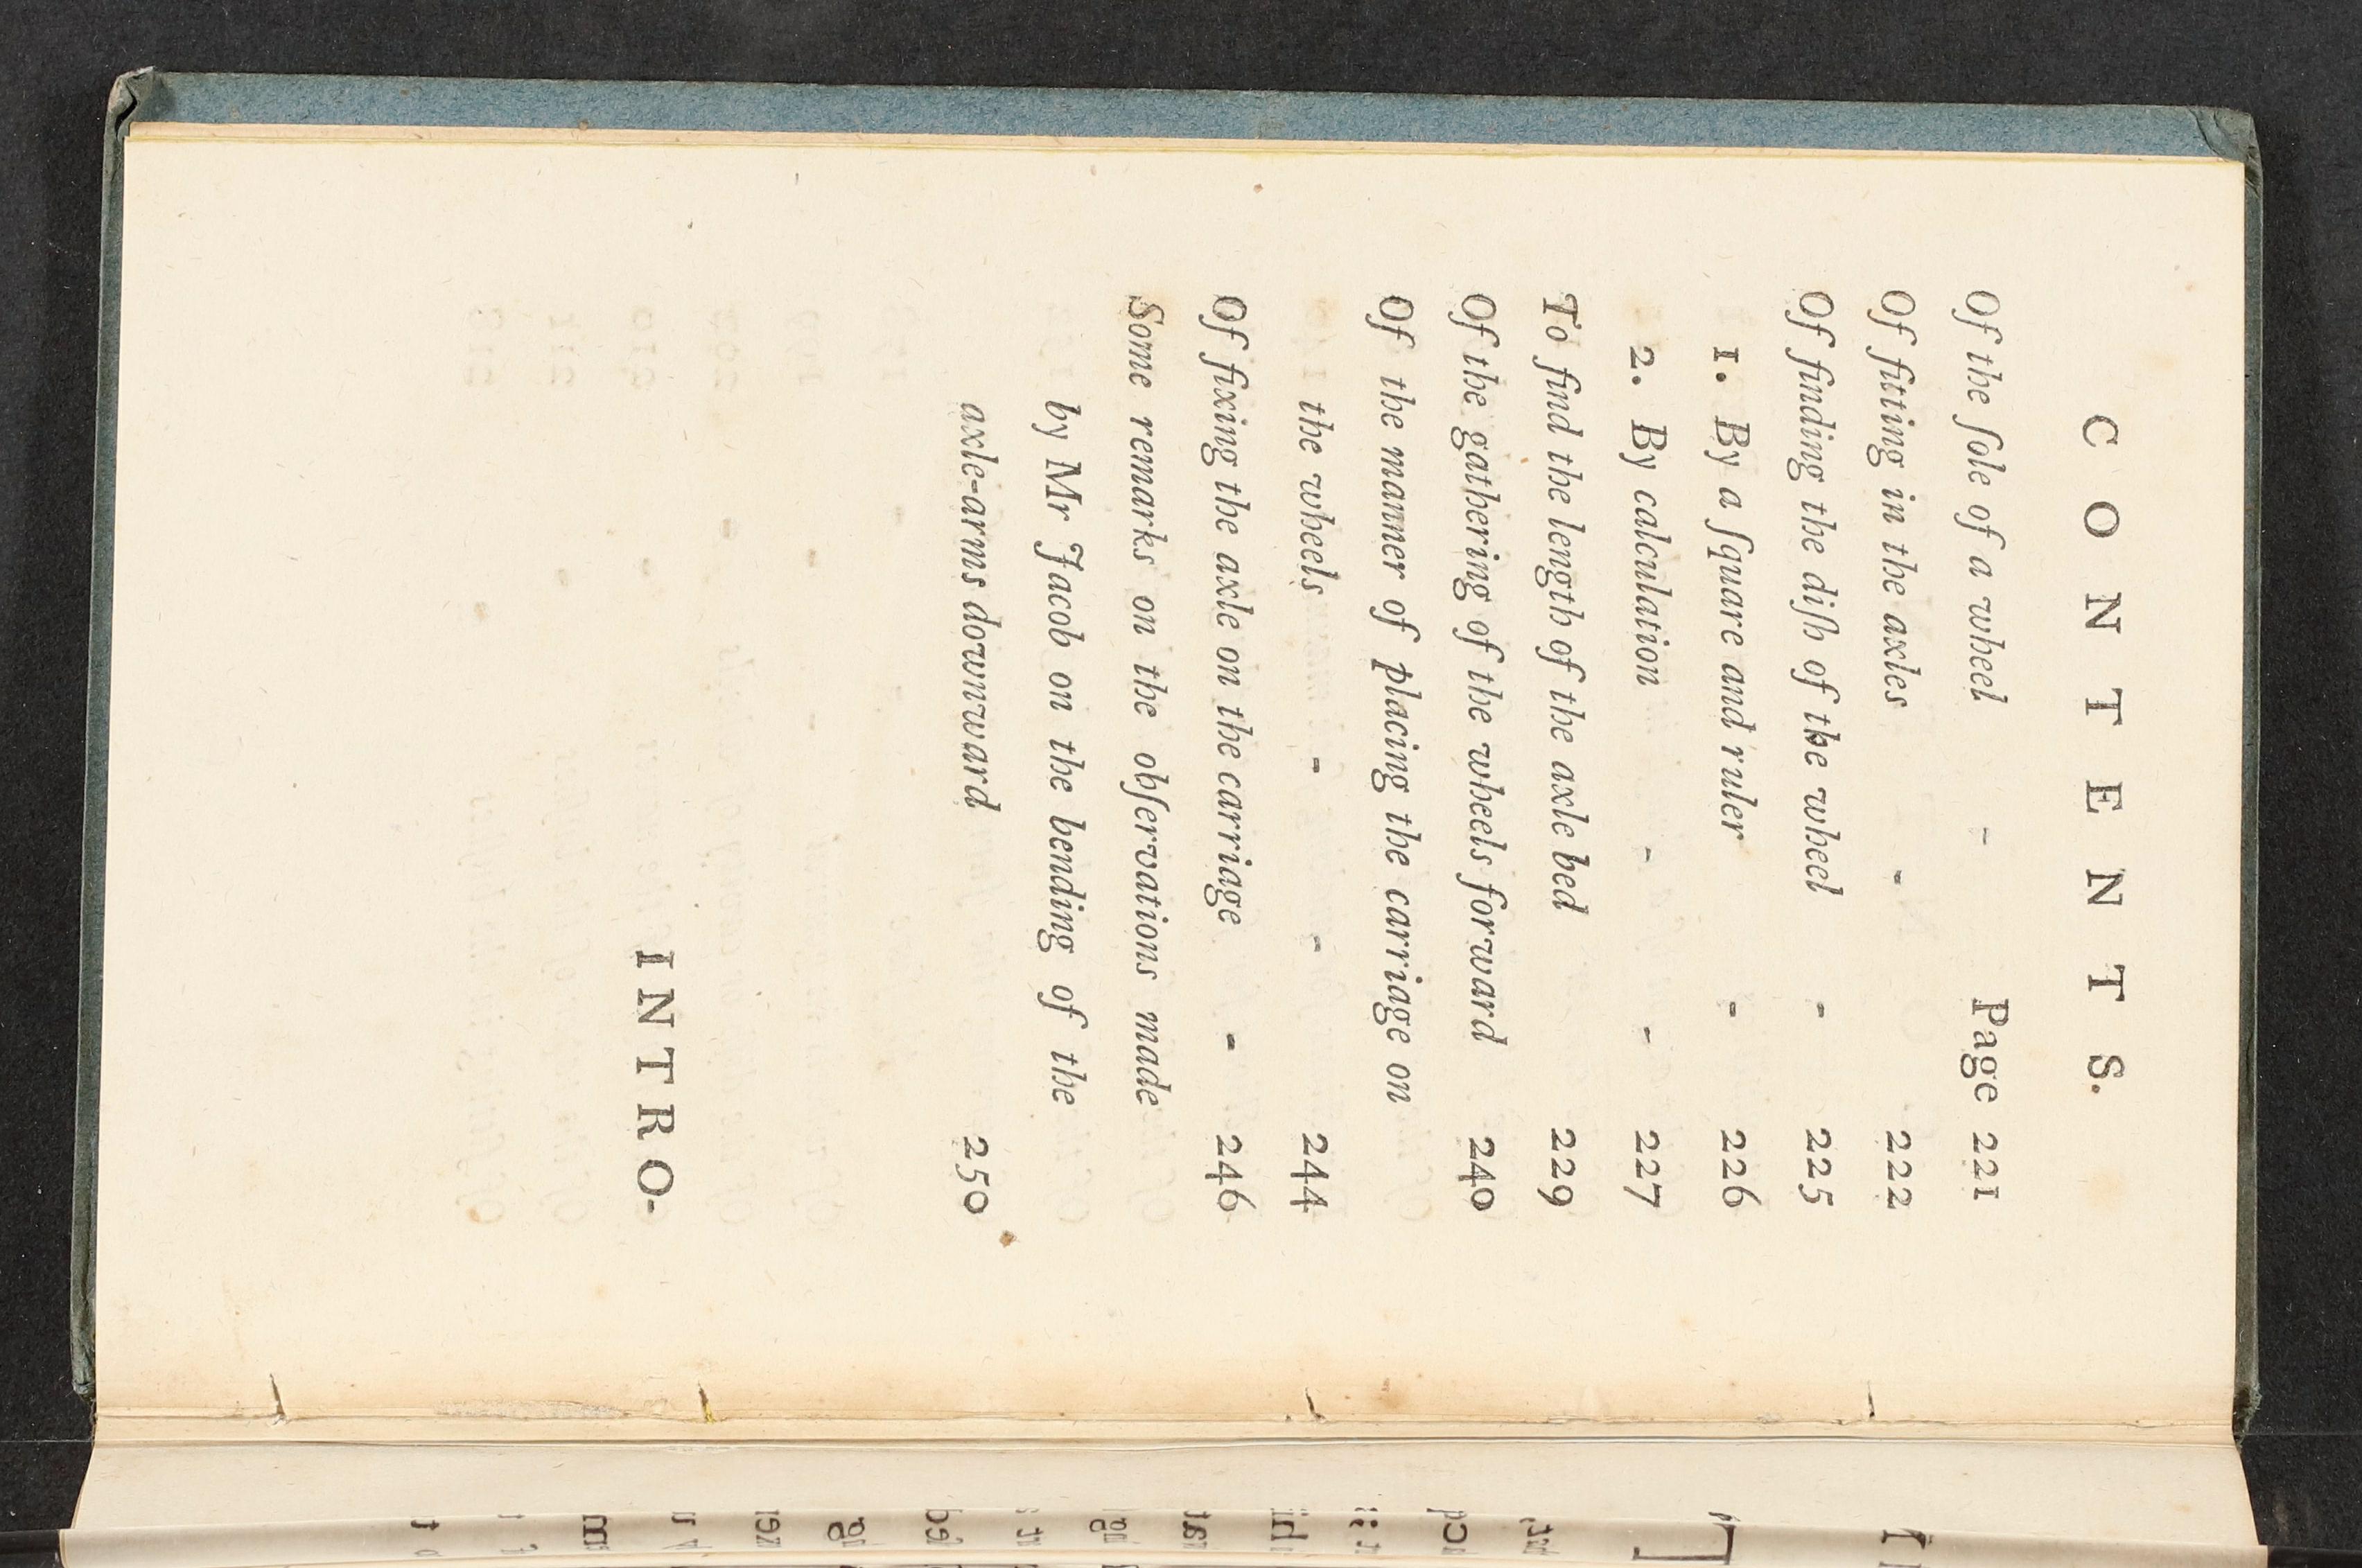 CONTENTS.
Of the ſole of a wheel - Page 221
Of fitting in the axles - 222
Of finding the diſh of the wheel - 225
1. By a ſquare and ruler - 226
2. By calculation - - 227
To find the length of the axle bed 229
Of the gathering of the wheels forward 240
Of the manner of placing the carriage on
the wheels - - 244
Of fixing the axle on the carriage - 246
Some remarks on the obſervations made
by Mr Jacob on the bending of the
axle-arms downward 250
INTRO-